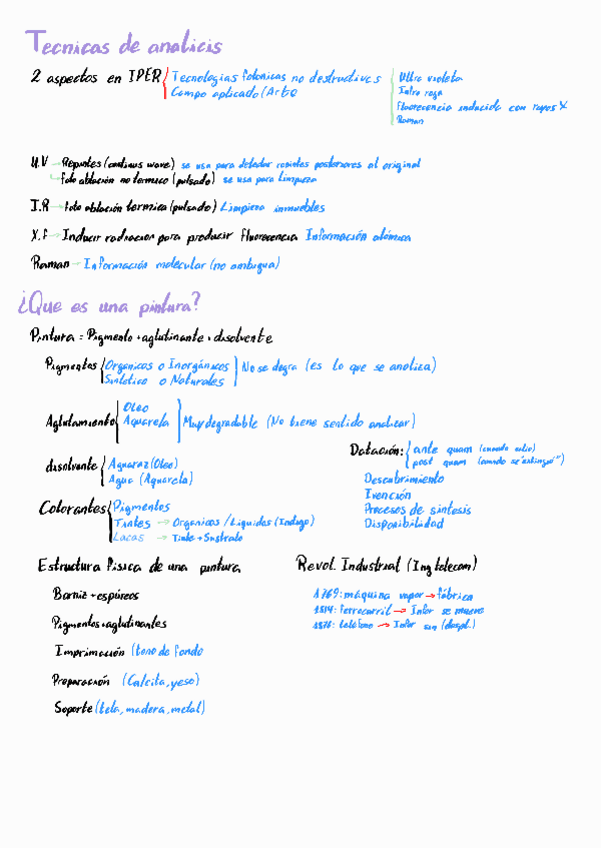 Tecnicas de analicis
2 aspectos en IPER
Tecnologias fotonicas no destructivas
Campo aplicado (Arte
Ultra violeta
Infra roja
Fluorescencia inducida con rayos X
Raman
U.V → Repintes (continus wave) se usa para detectar repintes posteriores al original
↳ foto ablación no termico (pulsado) se usa para Limpieza
I.R → foto ablación termica (pulsado) Limpieza inmuebles
X.F → Inducir radiacion para producir fluorescencia Información atómica
Raman → Información molecular (no ambigua)
¿Que es una pintura?
Pintura = Pigmento + aglutinante + disolvente
Pigmentos
Organicos o Inorgánicos
Sintetico o Naturales
No se degra (es lo que se analiza)
Aglutamiento
Oleo
Aquarela
Muy degradable (No tiene sentido analizar)
disolvente
Aguaraz (Oleo)
Agua (Aquarela)
Datación:
ante quam
post quam
Descubrimiento
Invención
Procesos de sintesis
Disponibilidad
Colorantes
Pigmentos
Tintes → Organicos / Liquidos (Indigo)
Lacas → Tinte + Sustrato
Estructura fisica de una pintura
Barniz + espúreos
Pigmentos + aglutinantes
Imprimación (tono de fondo
Preparación (Calcita, yeso)
Soporte (tela, madera, metal)
Revol. Industrial (Ing telecom)
1769: máquina vapor → fábrica
1814: ferrocarril → Infor se mueve
1876: teléfono → Infor sin (despl.)